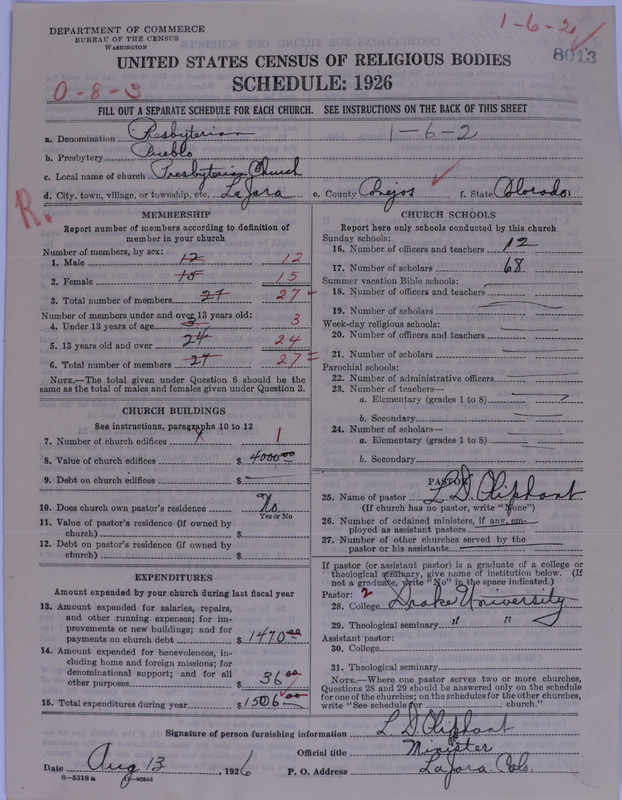 DEPARTMENT OF COMMERCE
BUREAU OF THE CENSUS
WASHINGTON
1-6-2
8013
UNITED STATES CENSUS OF RELIGIOUS BODIES
SCHEDULE: 1926
0-8-3
FILL OUT A SEPARATE SCHEDULE FOR EACH CHURCH. SEE INSTRUCTIONS ON THE BACK OF THIS SHEET
a. Denomination Presbyterian 1-6-2
b. Presbytery Pueblo
c. Local name of church Presbyterian Church
d. City, town, village, or township, etc. La Jara e. County Conejos f. State Colorado
R.
MEMBERSHIP
Report number of members according to definition of
member in your church
Number of members, by sex:
1. Male 12 12
2. Female 15 15
3. Total number of members 27 27
Number of members under and over 13 years old:
4. Under 13 years of age 3 3
5. 13 years old and over 24 24
6. Total number of members 27 27
NOTE.—The total given under Question 6 should be the
same as the total of males and females given under Question 3.
CHURCH BUILDINGS
See instructions, paragraphs 10 to 12
7. Number of church edifices 1
8. Value of church edifices $ 4000.00
9. Debt on church edifices $
10. Does church own pastor's residence No
Yes or No
11. Value of pastor's residence (if owned by
church) $
12. Debt on pastor's residence (if owned by
church) $
EXPENDITURES
Amount expended by your church during last fiscal year
13. Amount expended for salaries, repairs,
and other running expenses; for im-
provements or new buildings; and for
payments on church debt $ 1470.00
14. Amount expended for benevolences, in-
cluding home and foreign missions; for
denominational support; and for all
other purposes $ 36.00
15. Total expenditures during year $ 1506
CHURCH SCHOOLS
Report here only schools conducted by this church
Sunday schools:
16. Number of officers and teachers 12
17. Number of scholars 68
Summer vacation Bible schools:
18. Number of officers and teachers
19. Number of scholars
Week-day religious schools:
20. Number of officers and teachers
21. Number of scholars
Parochial schools:
22. Number of administrative officers
23. Number of teachers—
a. Elementary (grades 1 to 8)
b. Secondary
24. Number of scholars—
a. Elementary (grades 1 to 8)
b. Secondary
PASTOR
25. Name of pastor L. D. Oliphant
(If church has no pastor, write "None")
26. Number of ordained ministers, if any, em-
ployed as assistant pastors
27. Number of other churches served by the
pastor or his assistants
If pastor (or assistant pastor) is a graduate of a college or
theological seminary, give name of institution below. (If
not a graduate, write "No" in the space indicated.)
Pastor: 2
28. College Drake University
29. Theological seminary " "
Assistant pastor:
30. College
31. Theological seminary
NOTE.—Where one pastor serves two or more churches,
Questions 28 and 29 should be answered only on the schedule
for one of the churches; on the schedules for the other churches,
write "See schedule for church."
Signature of person furnishing information L. D. Oliphant
Official title Minister
Date Aug 13, 1926 P. O. Address La Jara. Colo.
6—5518 a